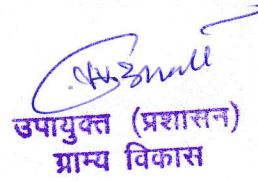 उपायुक्त (प्रशासन)
ग्राम्य विकास